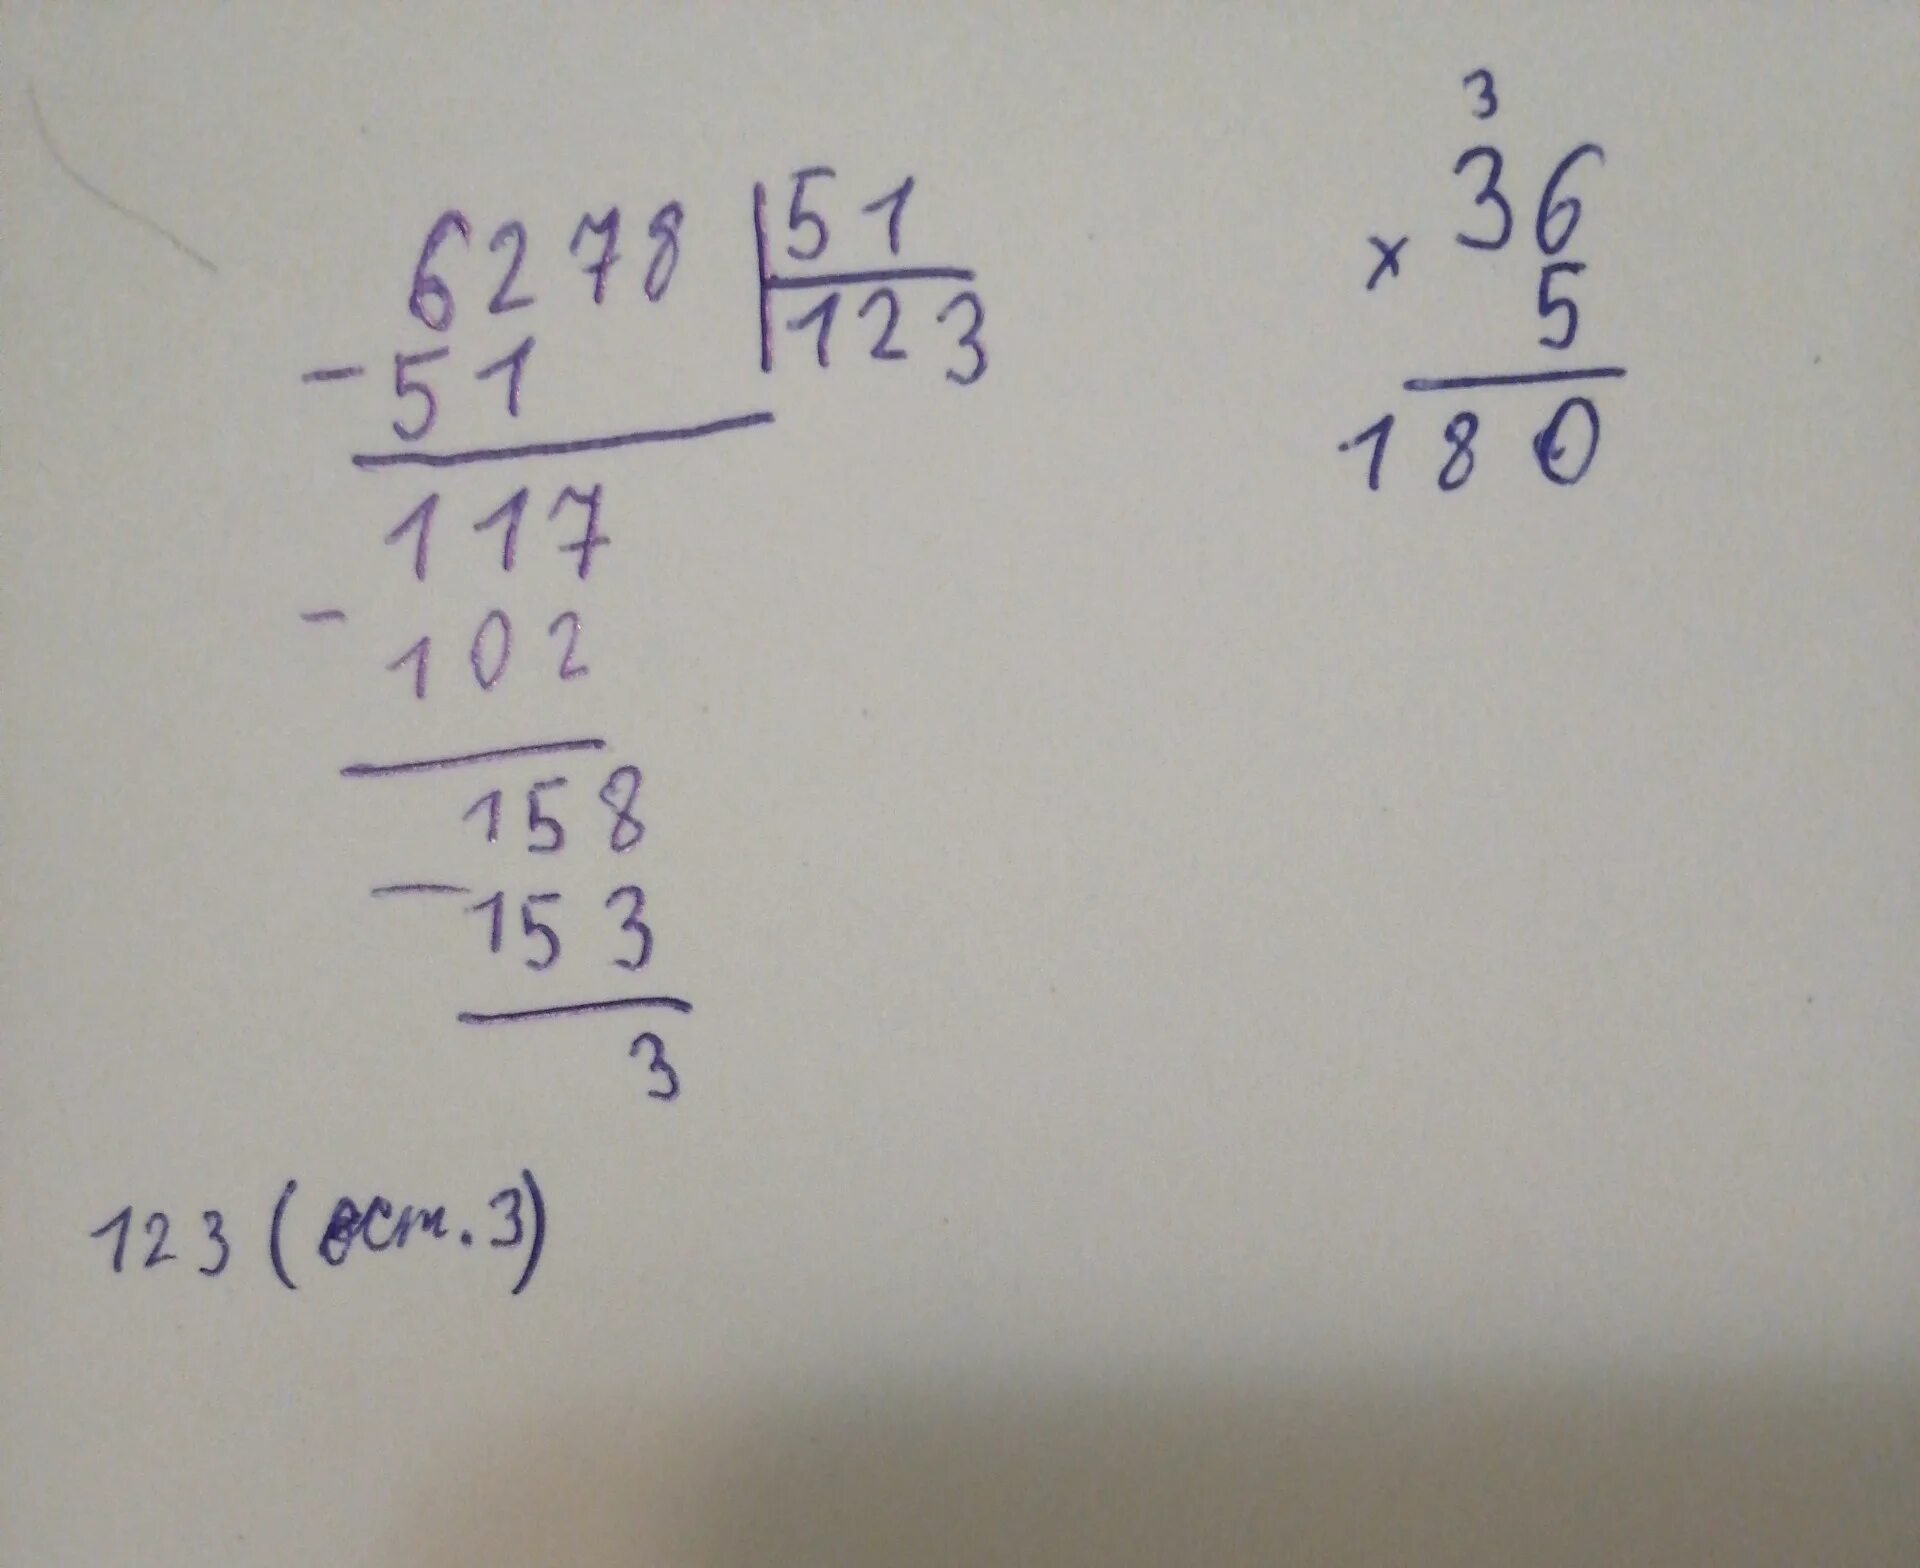 6278 51
- 51 123
117
- 102
158
- 153
3
123 (ост. 3)
3
36
x
5
180